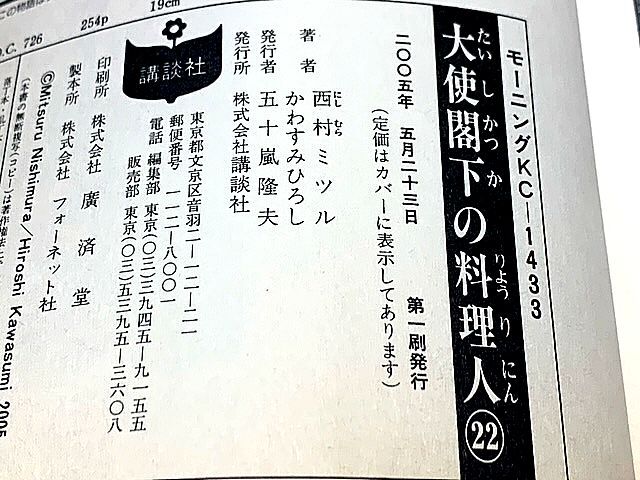 モーニングKC-1433
大使閣下の料理人㉒
たいしかっか
りょうりにん
二〇〇五年 五月二十三日 第一刷発行
(定価はカバーに表示してあります)
著者 西村ミツル
にしむら
かわすみひろし
発行者 五十嵐隆夫
発行所 株式会社講談社
東京都文京区音羽二-一二-二一
郵便番号 一一二-八〇〇一
電話 編集部 東京(〇三)三九四五-九一五五
販売部 東京(〇三)五三九五-三六〇八
講談社
印刷所 株式会社 廣済堂
製本所 株式会社 フォーネット社
©Mitsuru Nishimura/Hiroshi Kawasumi 2005
(本書の無断複写(コピー)は著作権法
.C. 726 254p 19cm
この物語は